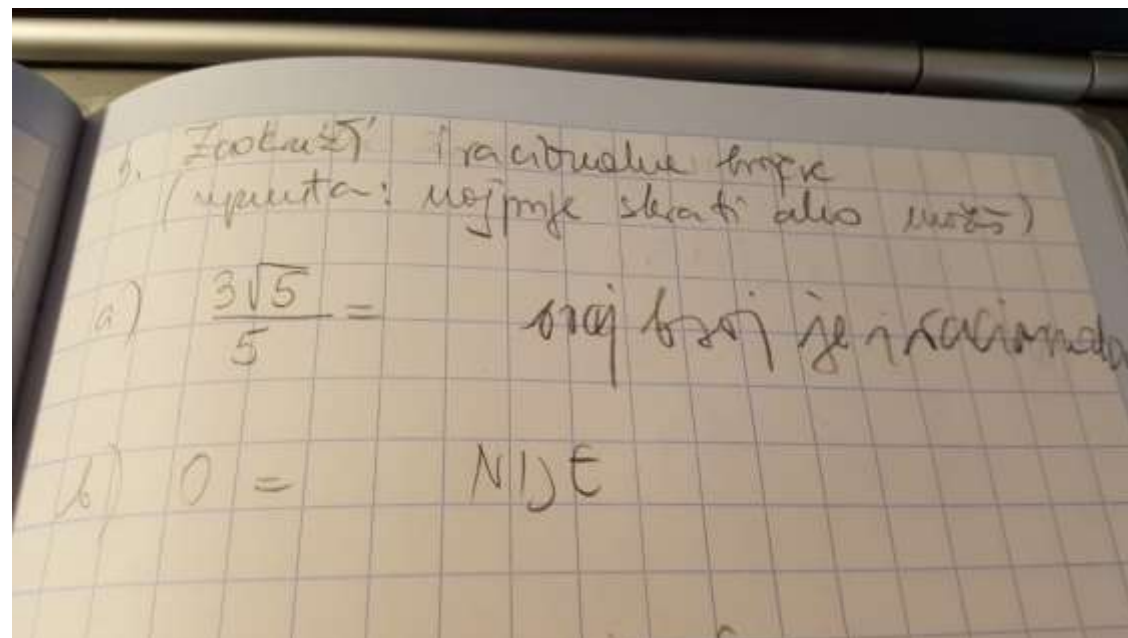 3. Zaokruži iracionalne brojeve
(uputa: najprije skrati ako možeš)
a) 3√5/5 = ovaj broj je iracionala
b) 0 = NIJE